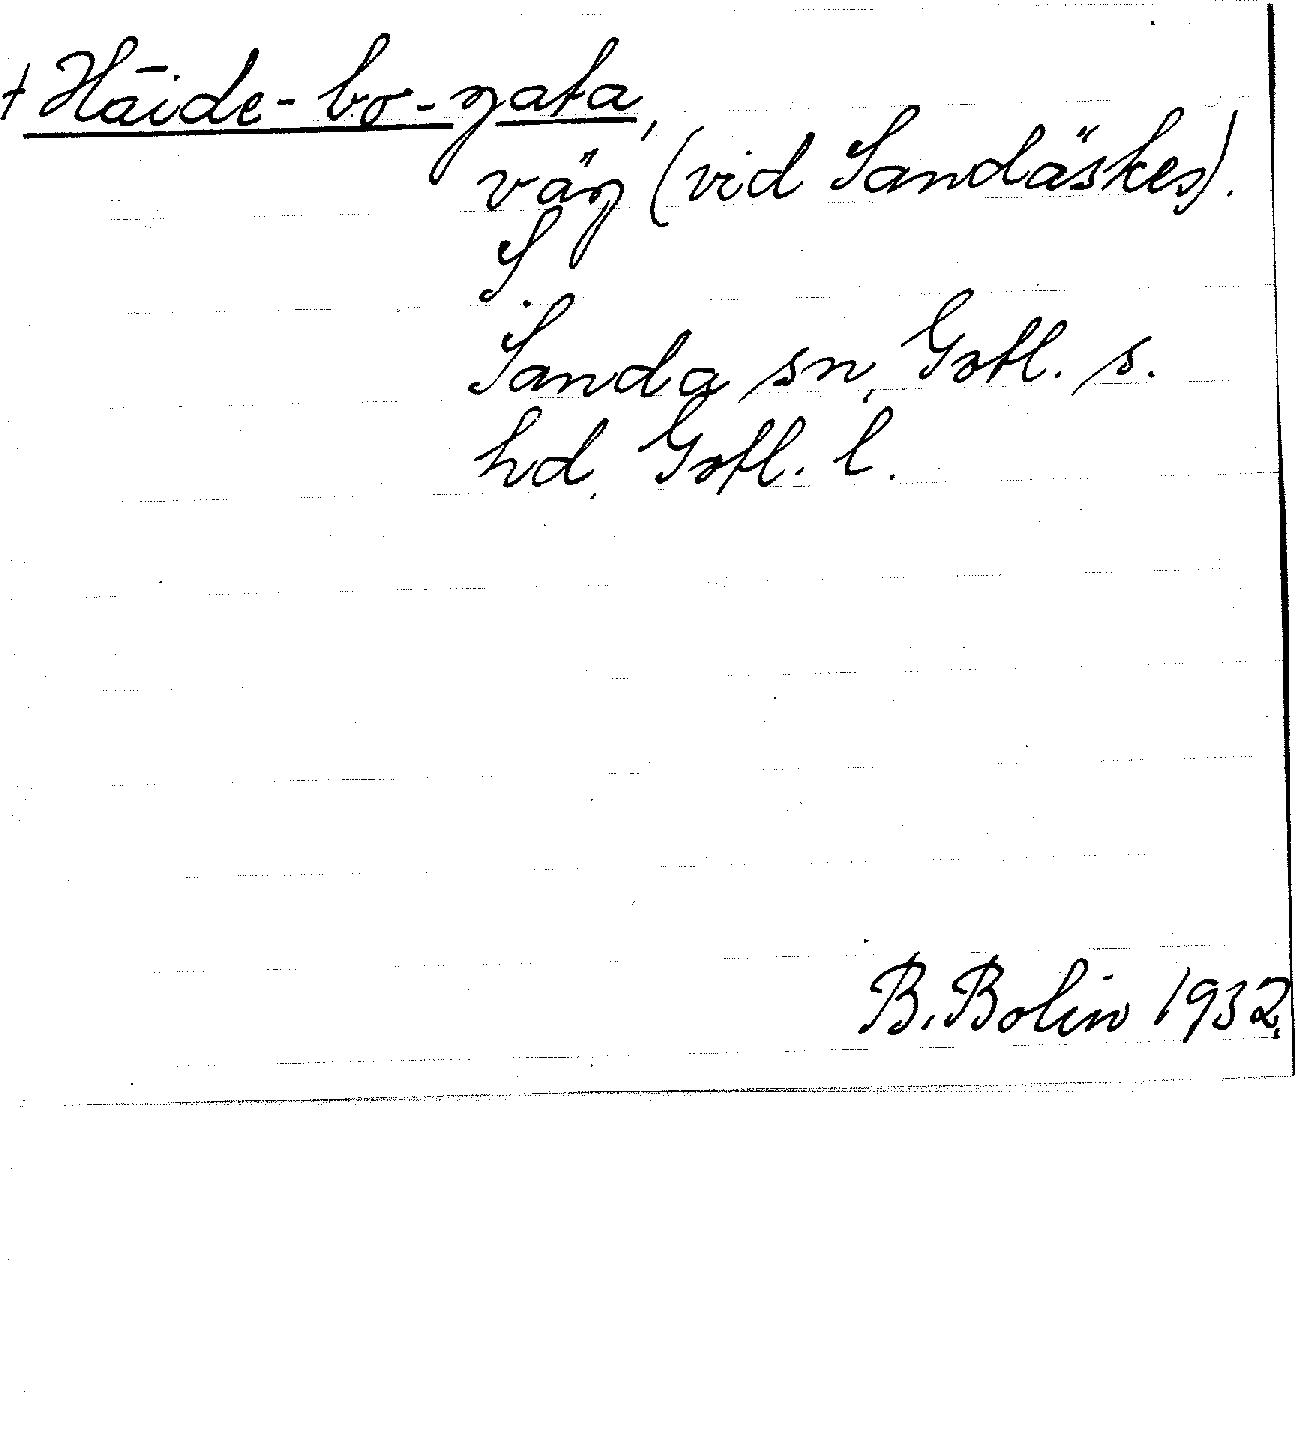 + Häide-bo-gata,
väg (vid Sandäskes).
S
Sanda sn, Gotl. s.
hd, Gotl. l.
B. Bolin 1932.